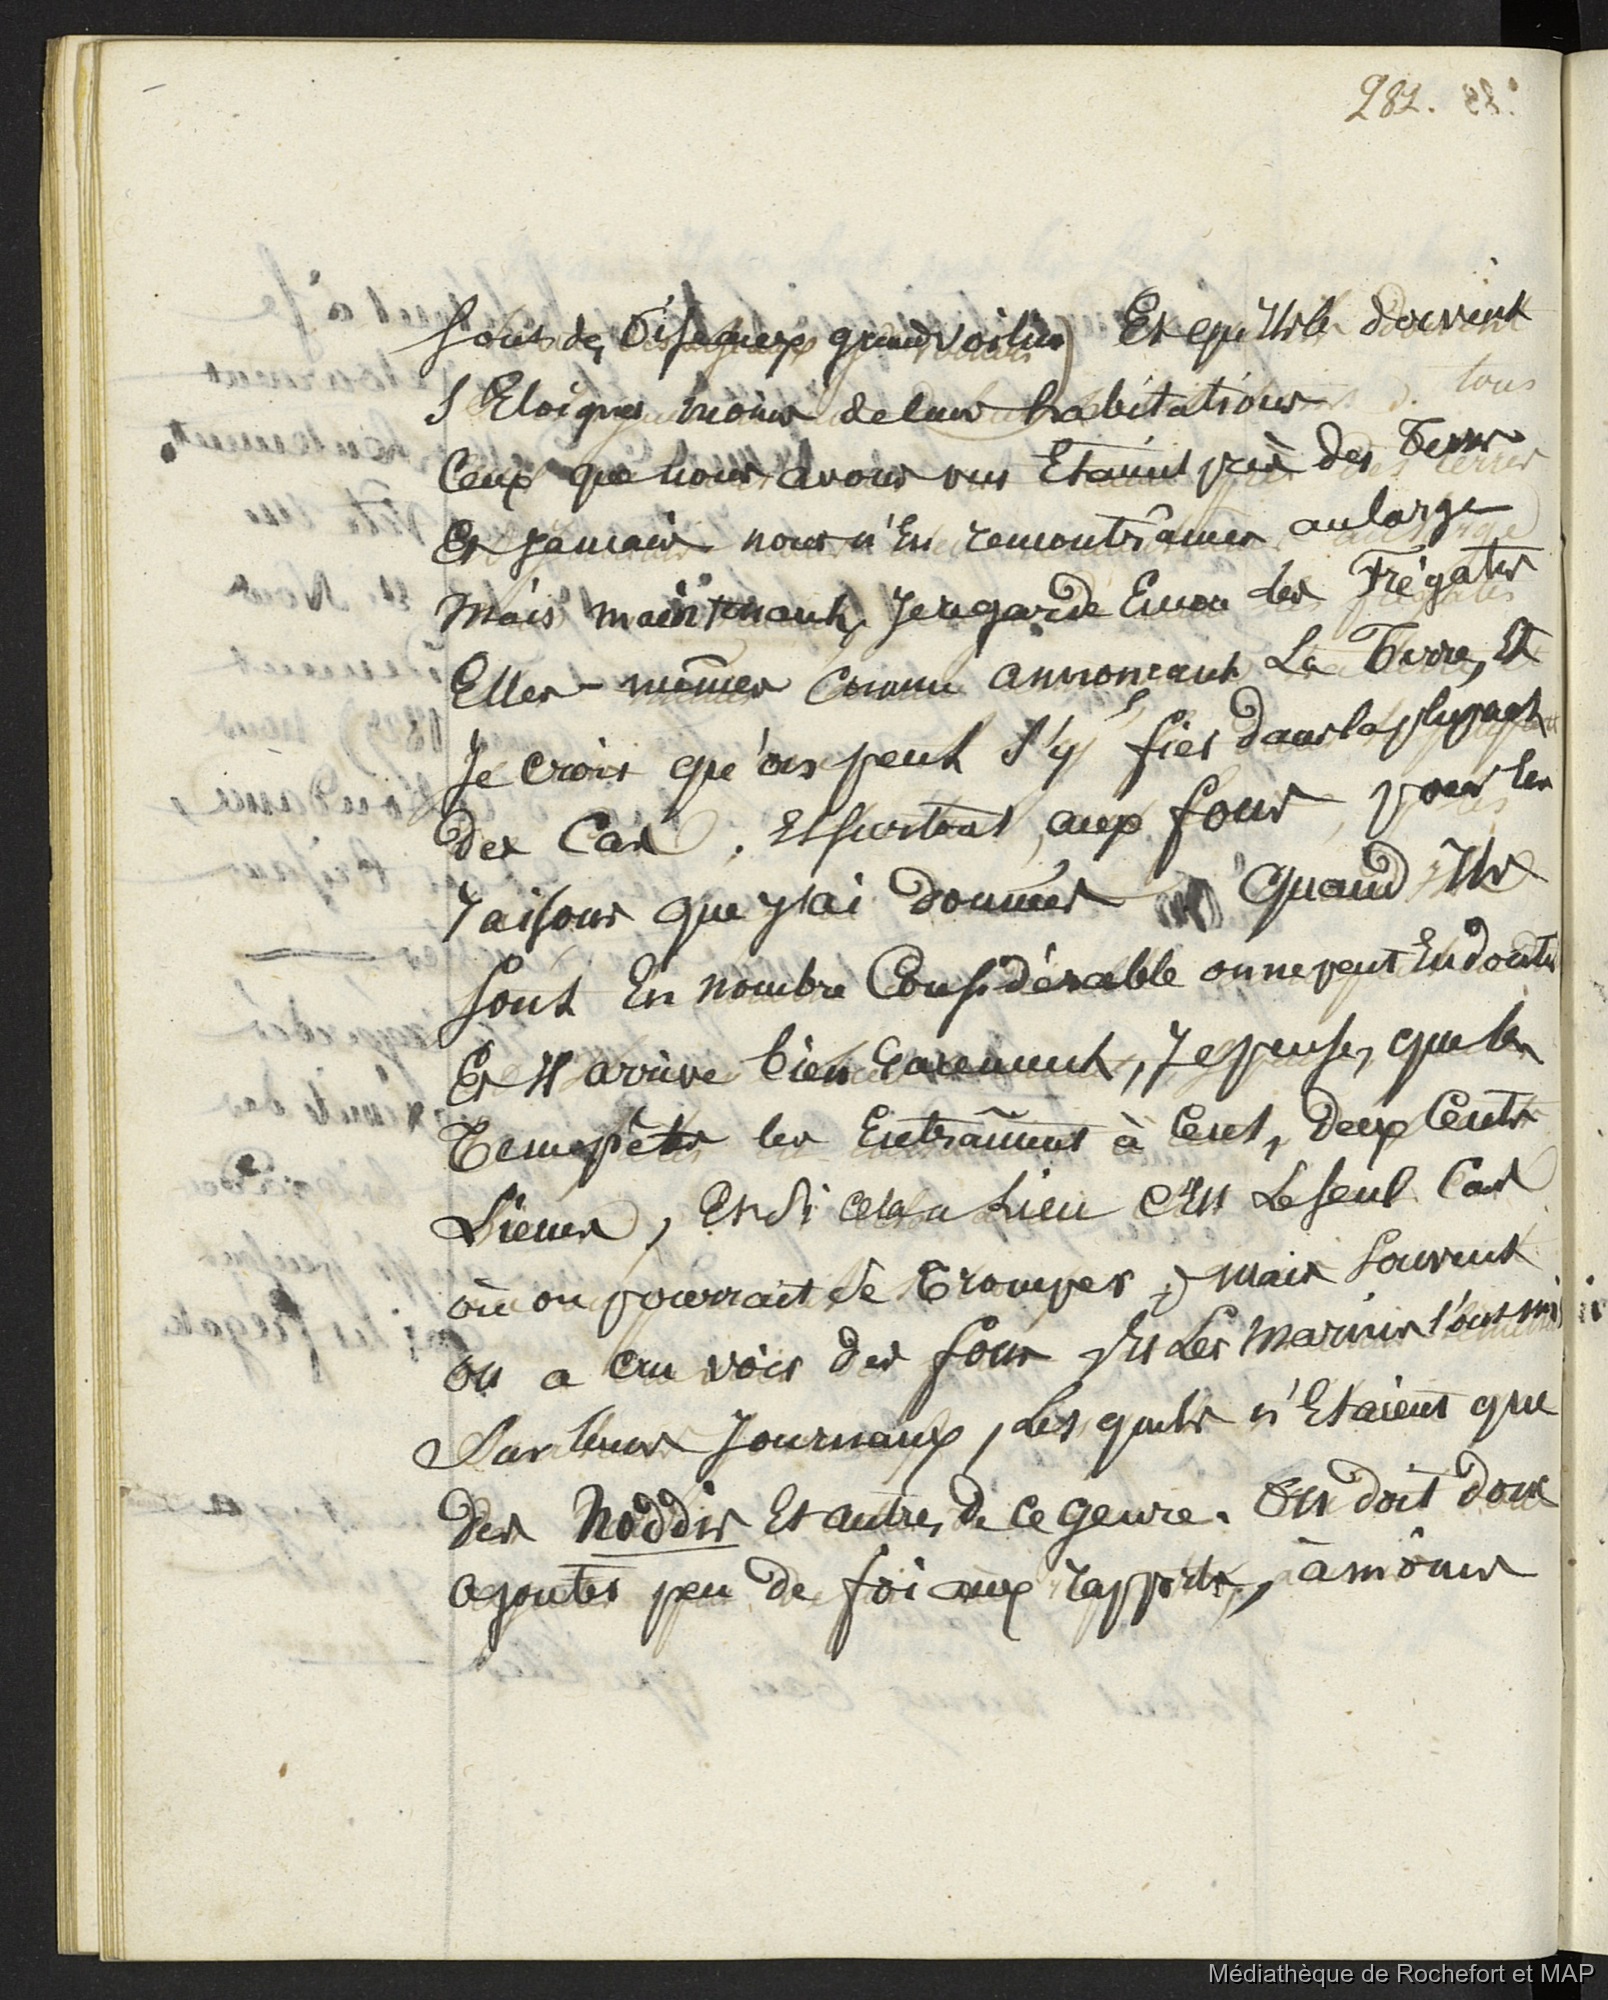 282. 
sont des Oiseaux grand voiliers) Et qu'Ils doivent
s'Eloigner moins de leur habitations tous
Ceux que nous avons vus Etaient près des Terres
Et jamais nous n'En rencontrâmes au large
Mais maintenant, Je regarde Encor les Frégates
Elles-mêmes Comme annonçant La Terre, Et
Je crois qu'on peut s'y fier dans la plupart
des Cas. Et surtout, aux fous, pour les
raisons que j'ai donnéés Quand Ils
sont En nombre Considérable on ne peut En douter
Et Il arrive bien rarement, Je pense, que les
Tempêtes les Entraînent à Cent, deux Cents
Lieues, Et Si cela a Lieu C'Est Le seul Cas
où on pourrait se Tromper; mais souvent
on a cru voir des fous Et Les Marins l'ont mis
Sur leurs Journaux, Lesquels n'Etaient que
des Noddis Et autres de ce genre. On doit donc
ajouter peu de foi aux rapports, à moins
Médiathèque de Rochefort et MAP